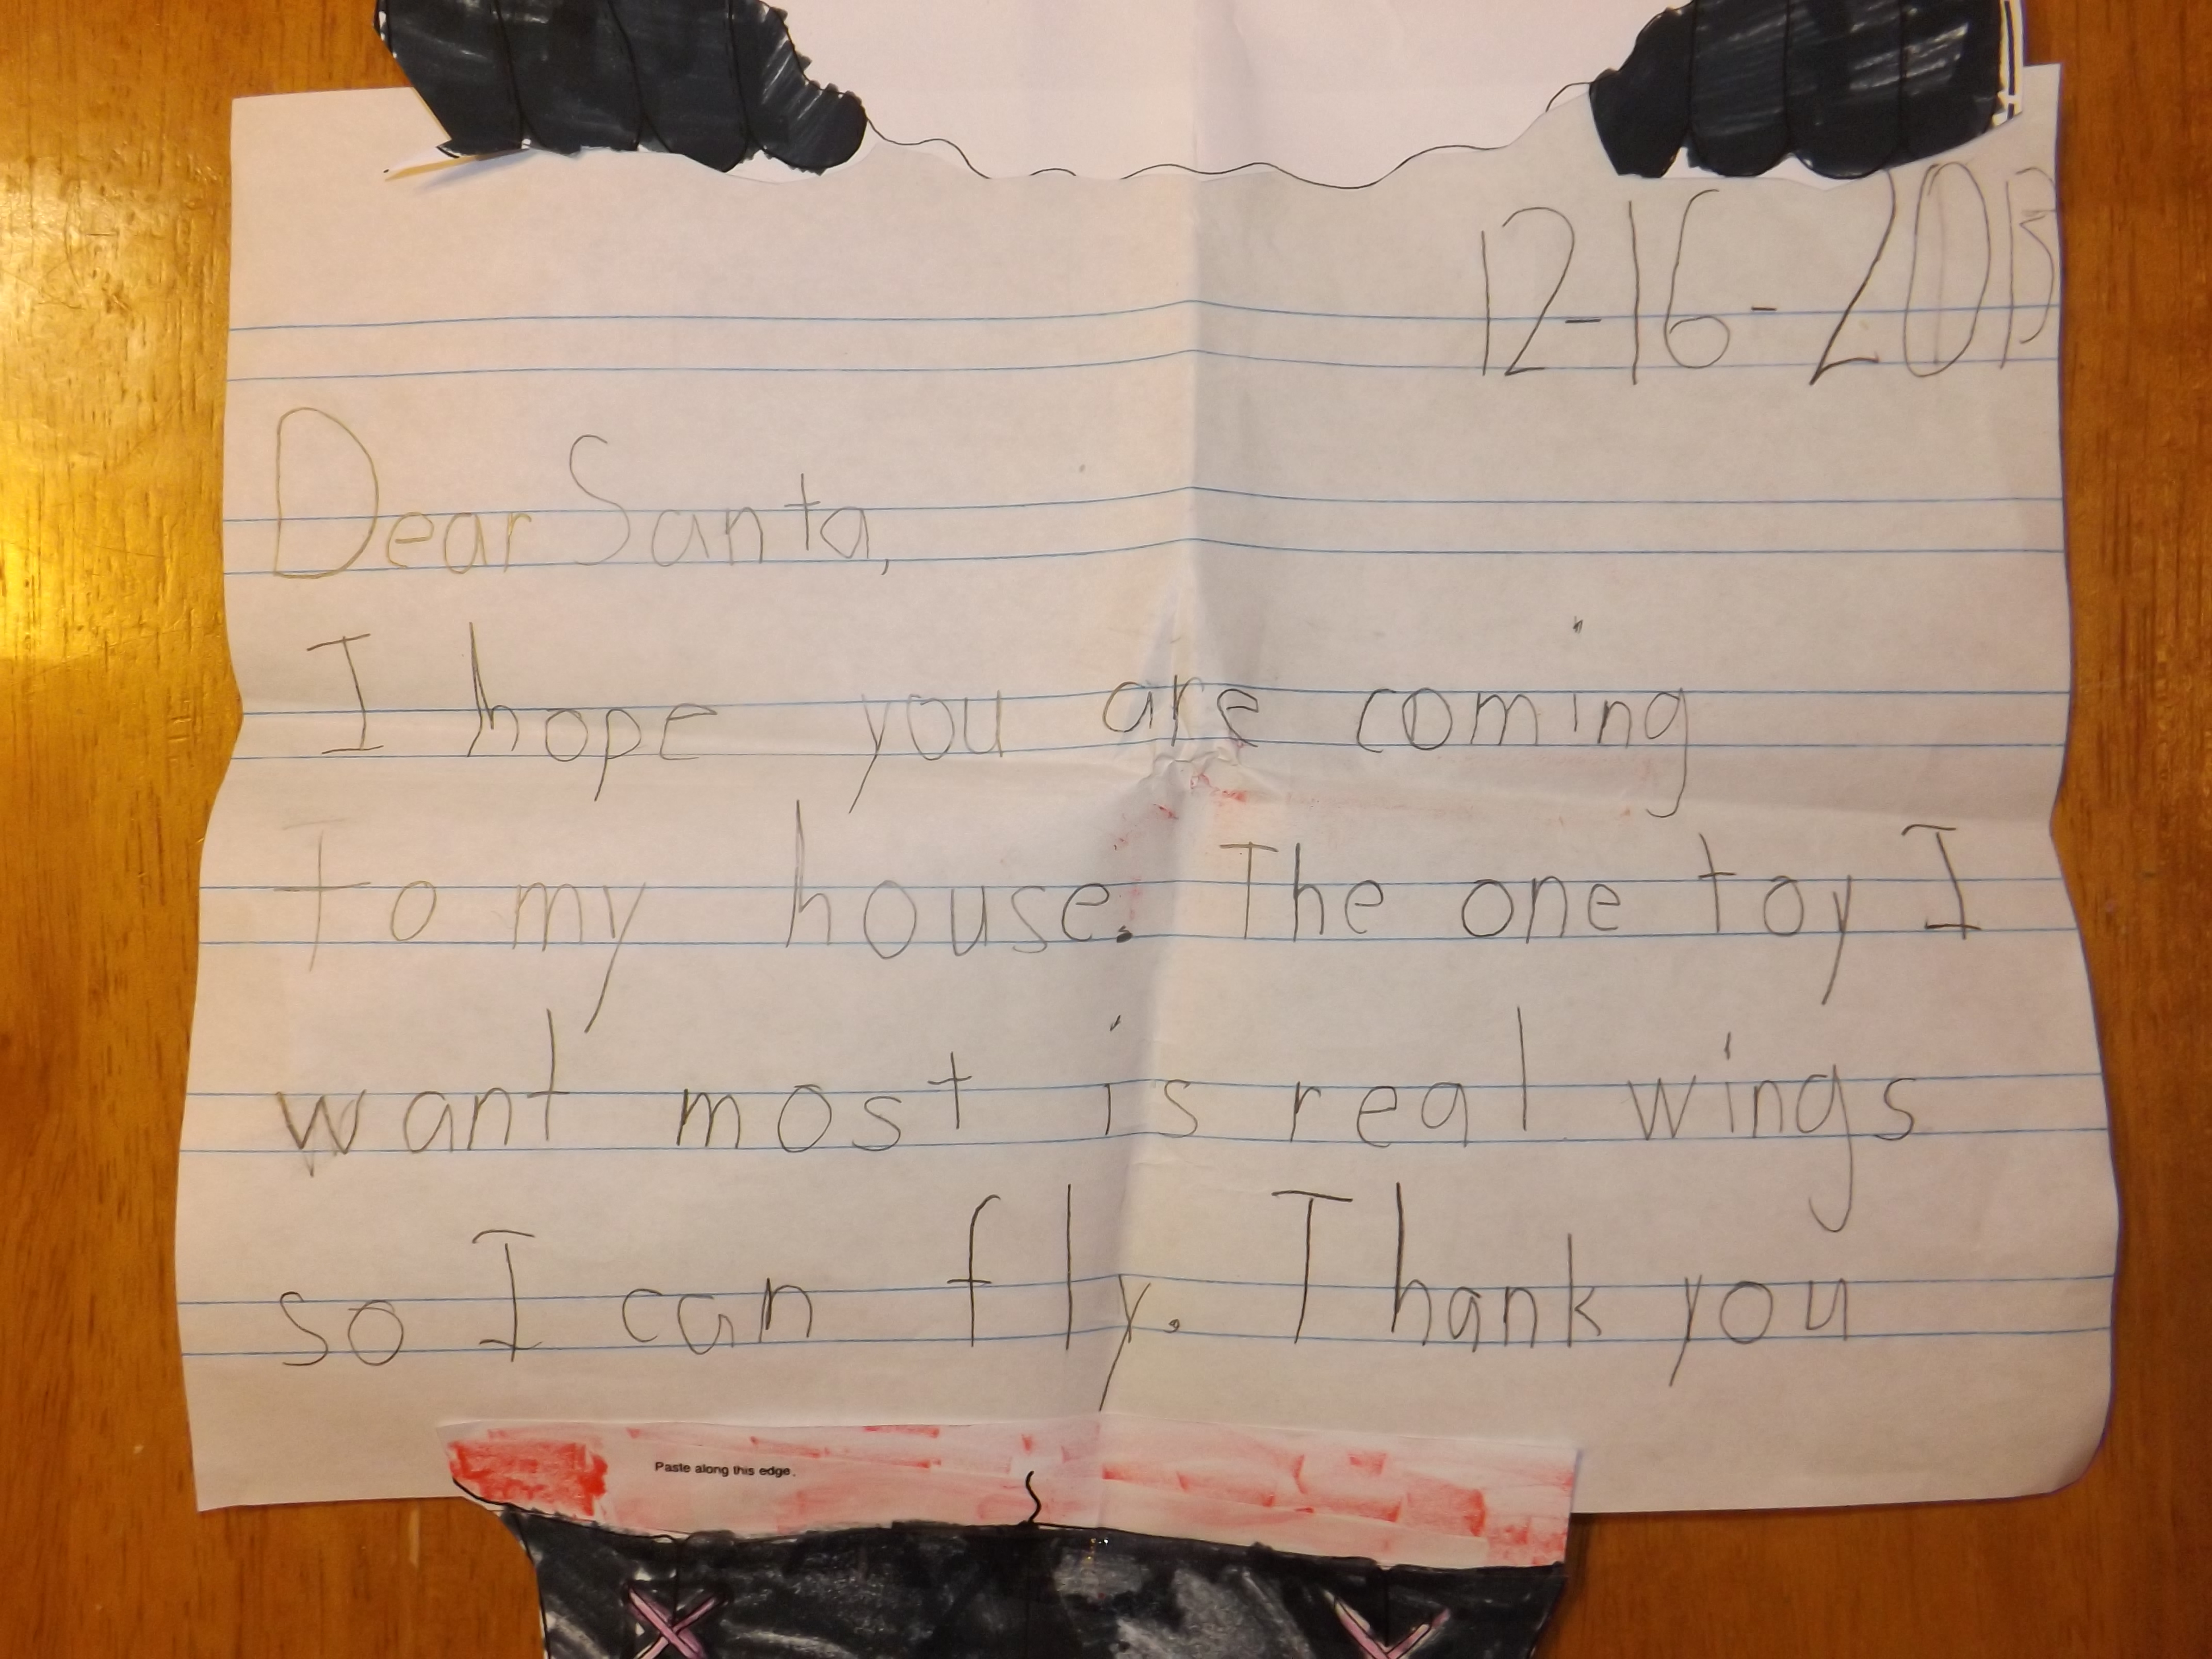 12-16-2013
Dear Santa,
I hope you are coming
to my house. The one toy I
want most is real wings
so I can fly. Thank you
Paste along this edge.